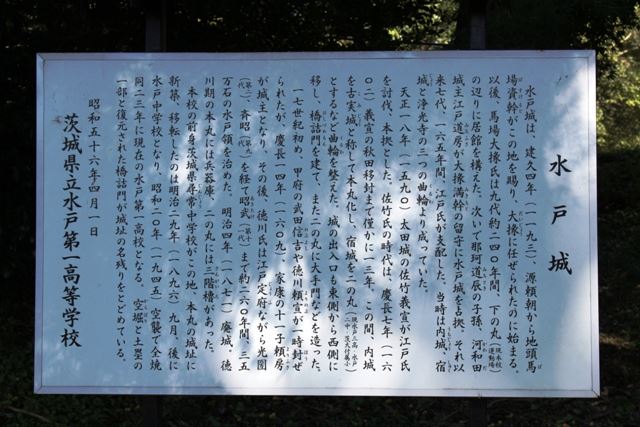 水戸城
水戸城は、建久四年(一一九三)、源頼朝から地頭馬
場資幹がこの地を賜り、大掾に任ぜられたのに始まる。
以後、馬場大掾氏は九代約二四〇年間、下の丸(現本校運動場)
の辺りに居館を構えた。次いで那珂道辰の子孫、河和田
城主江戸道房が大掾満幹の留守に水戸城を占拠、それ以
来七代、一六五年間、江戸氏が支配した。当時は内城、宿
城と浄光寺の三つの曲輪より成っていた。
天正一八年(一五九〇)太田城の佐竹義宣が江戸氏
を討伐、本拠とした。佐竹氏の時代は、慶長七年(一六
〇二)義宣の秋田移封まで僅かに一三年、この間、内城
を古実城と称して本丸化し、宿城を二の丸(現水戸三高・水戸二中・茨大付属小)
とするなど曲輪を整えた。城の出入口も東側から西側に
移し、橋詰門を建て、また二の丸に大手門などを造った。
一七世紀初め、甲府の武田信吉や徳川頼宣が一時封ぜ
られたが、慶長一四年(一六〇九)、家康の十一子頼房
が城主となり、その後、徳川氏は江戸定府ながら光圀
(第二代)、斉昭(第九代)を経て昭武(第十一代)まで約二六〇年間、三五
万石の水戸領を治めた。明治四年(一八七一)廃城、徳
川期の本丸には兵器庫、二の丸には三階櫓があった。
本校の前身茨城県尋常中学校がこの地、本丸の城址に
新築、移転したのは明治二九年(一八九六)九月、後に
水戸中学校となり、昭和二〇年(一九四五)空襲で全焼
同二三年に現在の水戸第一高校となる。空堀と土塁の
一部と復元された橋詰門が城址の名残りをとどめている。
昭和五十六年四月一日
茨城県立水戸第一高等学校